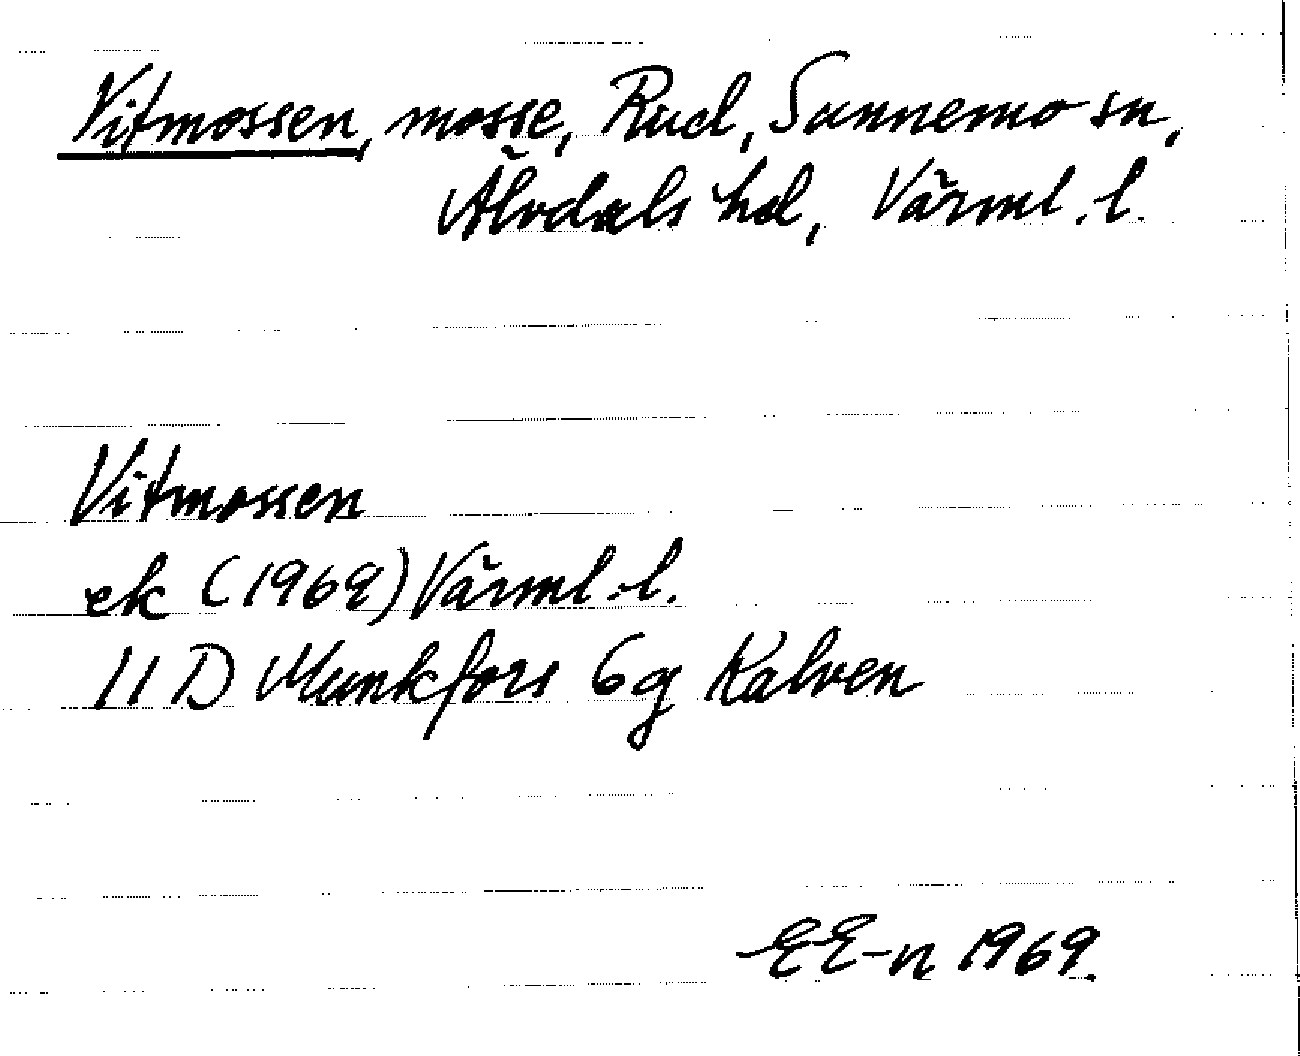 Vitmossen, mosse, Rud, Sunnemo sn,
Älvdals hd, Värml. l.
Vitmossen
ek (1969) Värml. l.
11 D Munkfors 6g Kalven
EE-n 1969.